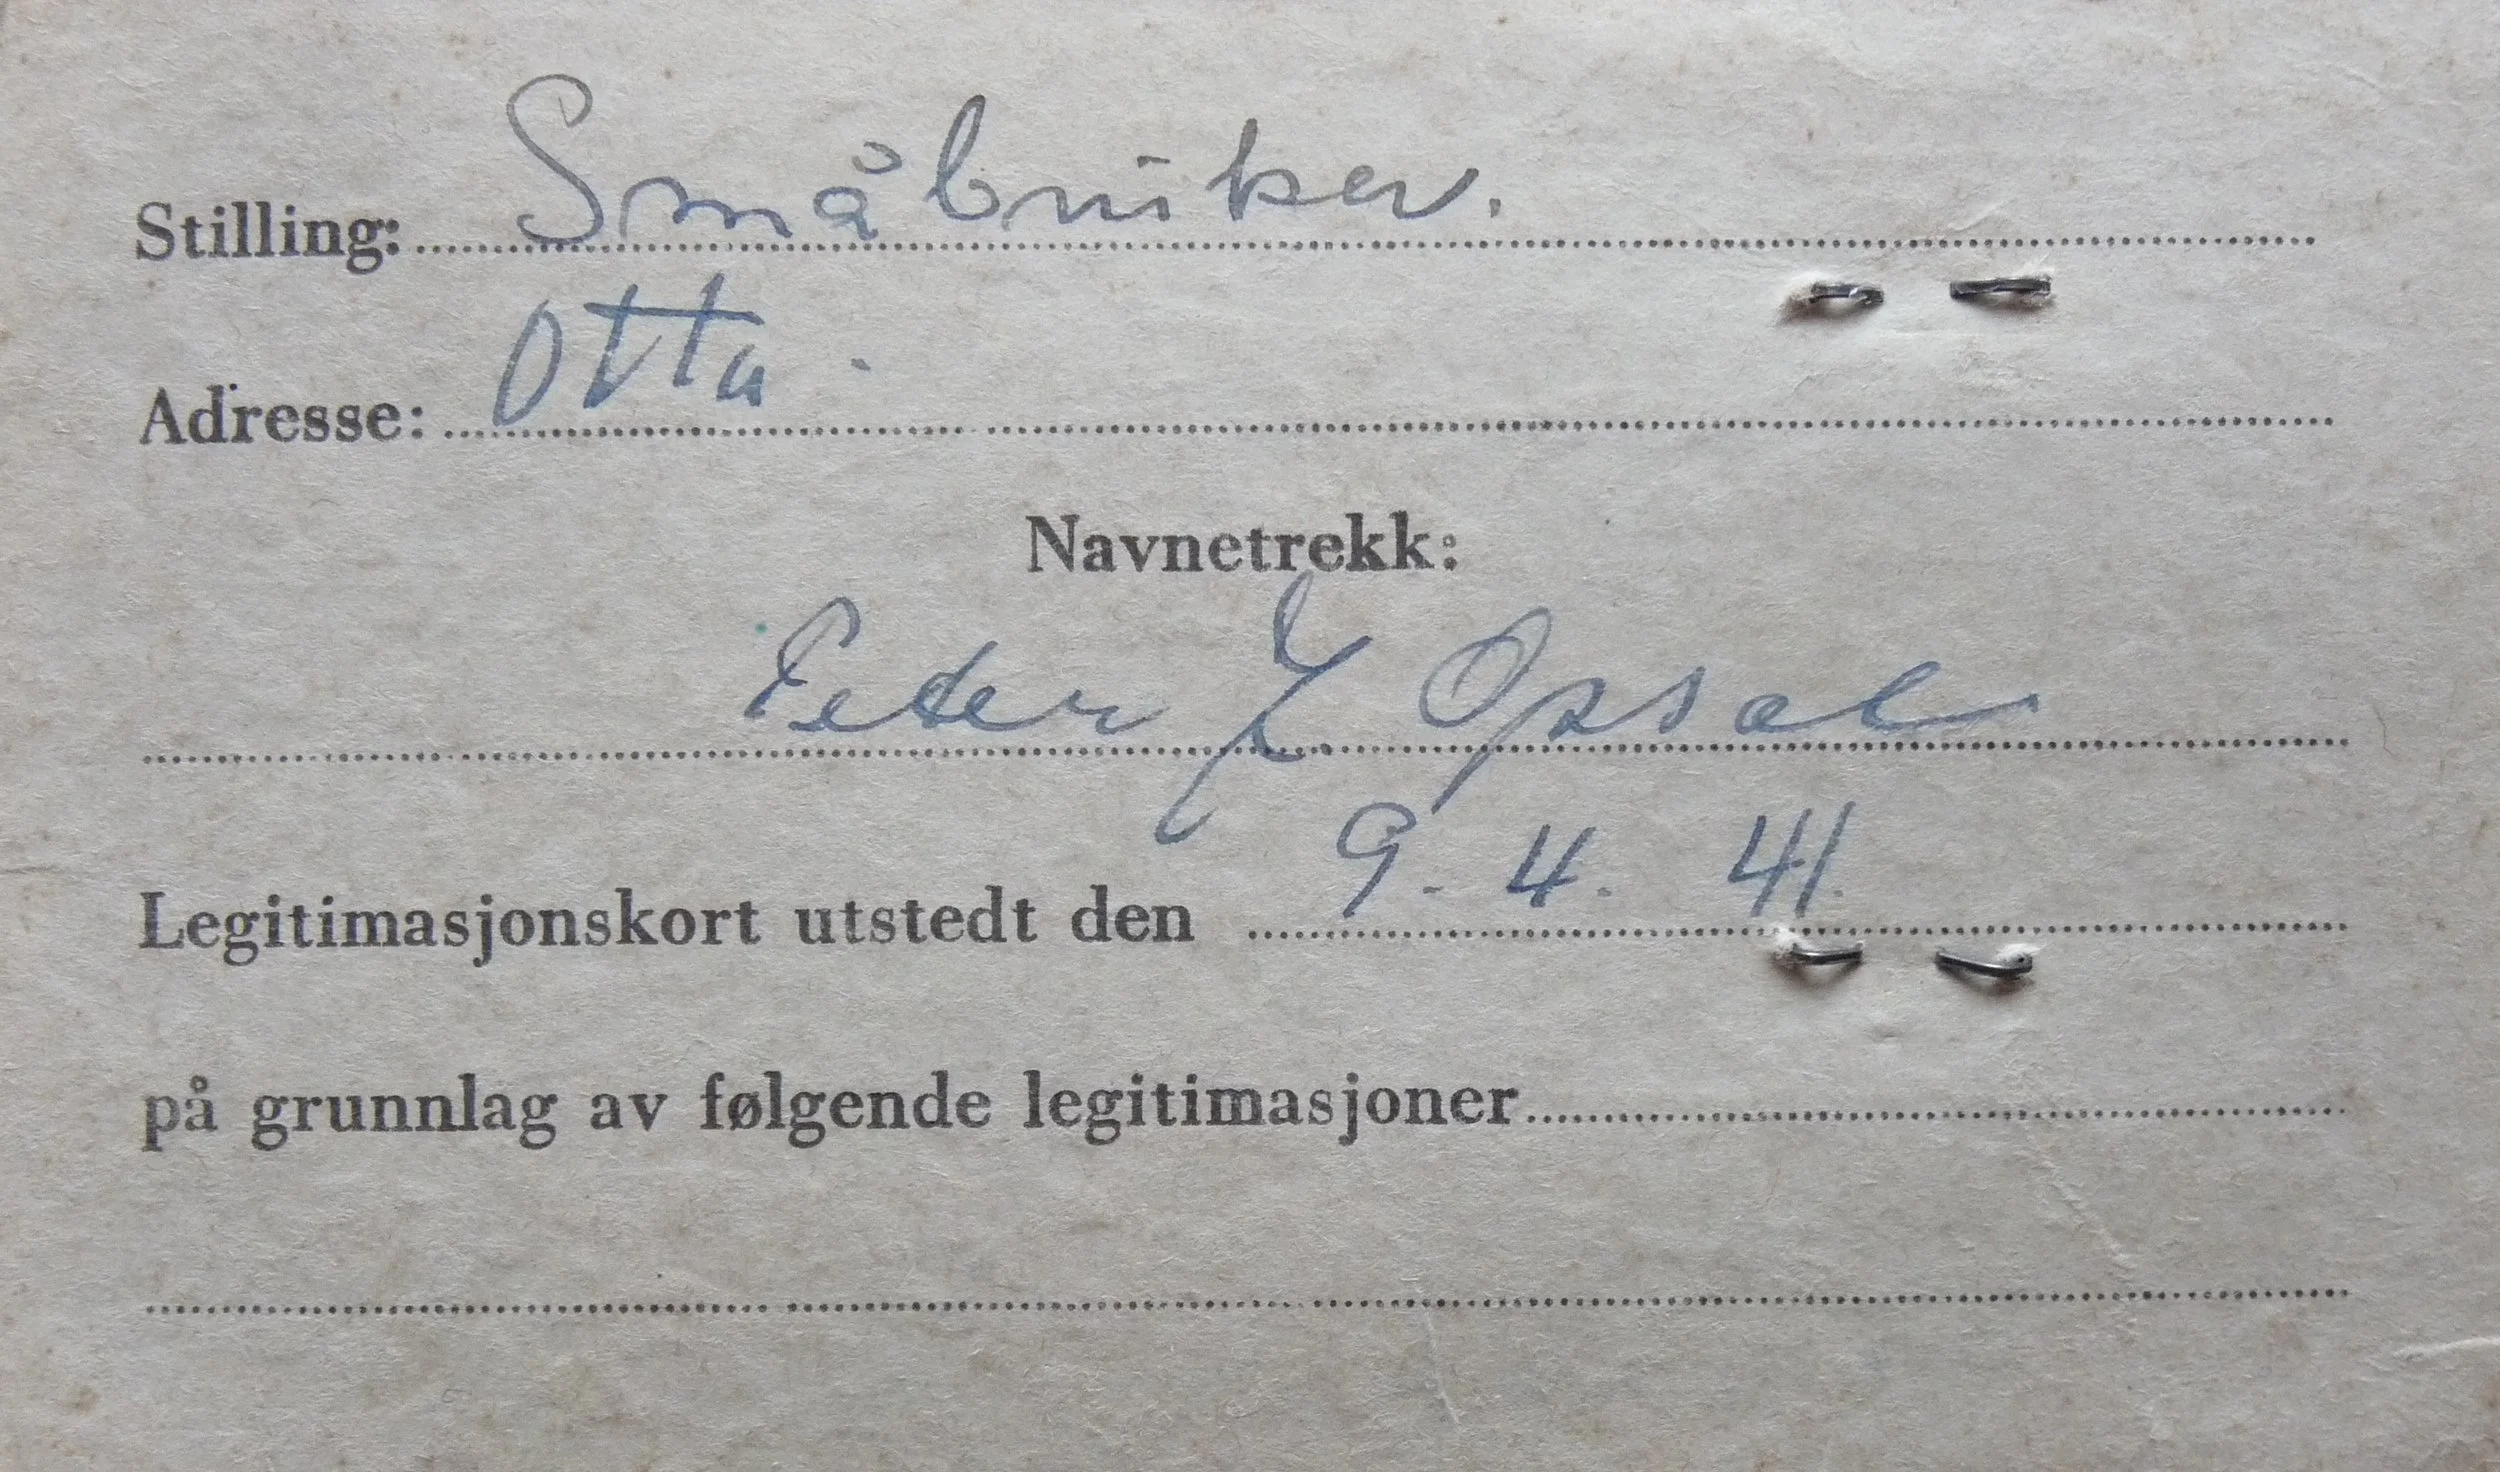 Stilling: Småbruker.
Adresse: Otta.
Navnetrekk:
Peter Opsal
Legitimasjonskort utstedt den 9.4.41.
på grunnlag av følgende legitimasjoner